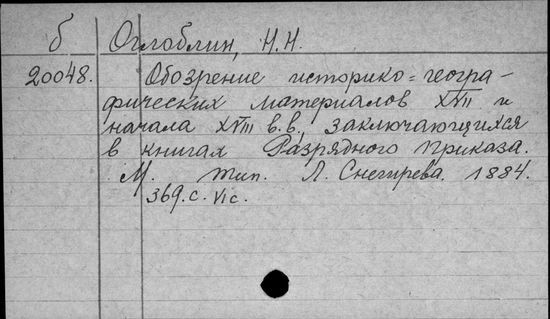 б Оглоблин, Н.Н.
20048. Обозрение историко=геогра-
фических материалов XVII и
начала XVIII в.в., заключающихся
в книгах Разрядного приказа.
М. тип. Л. Снегирева. 1884.
369.с. VI с.